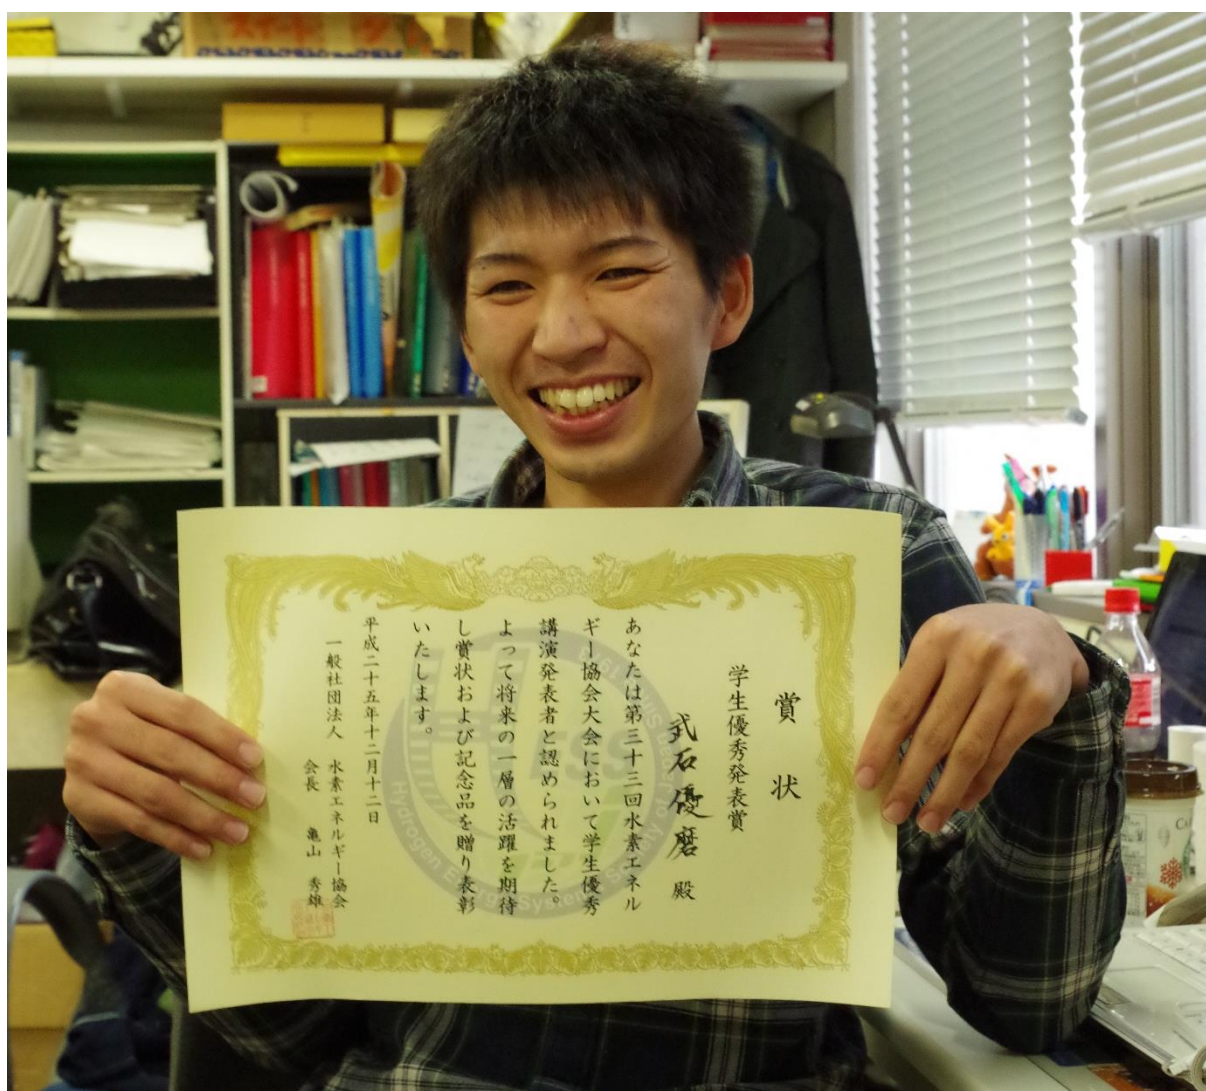 賞状
学生優秀発表賞
武石優磨 殿
あなたは第三十三回水素エネル
ギー協会大会において学生優秀
講演発表者と認められました。
よって将来の一層の活躍を期待
し賞状および記念品を贈り表彰
いたします。
平成二十五年十二月十二日
一般社団法人 水素エネルギー協会
会長 亀山 秀雄
HESS
Hydrogen Energy Systems Society of Japan